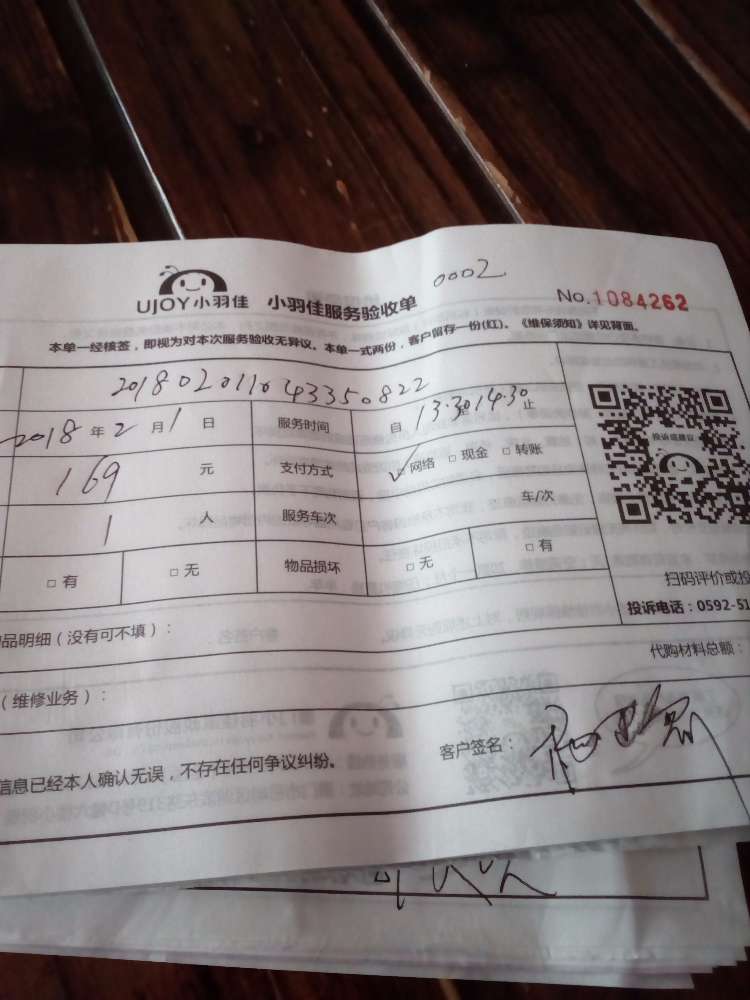 0002
UJOY小羽佳 小羽佳服务验收单 No.1084262
本单一经核签，即视为对本次服务验收无异议。本单一式两份，客户留存一份(红)。《维保须知》详见背面。
2018020110433350822
2018年2月1日 服务时间 自13:30至14:30止
169元 支付方式 ☑网络 □现金 □转账
1人 服务车次 车/次
□有 □无 物品损坏 □无 □有
投诉或建议
扫码评价或投
投诉电话：0592-51
品明细（没有可不填）：
代购材料总额：
（维修业务）：
信息已经本人确认无误，不存在任何争议纠纷。
客户签名：